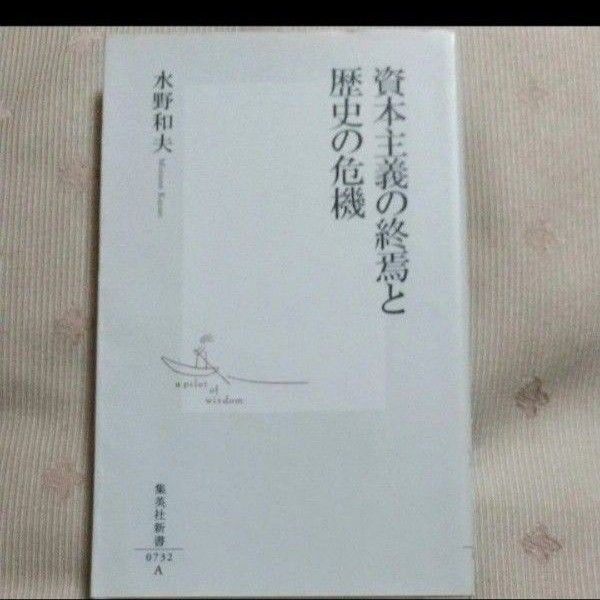 資本主義の終焉と
歴史の危機
水野和夫
Mizuno Kazuo
a pilot
of
wisdom
集英社新書
0732
A